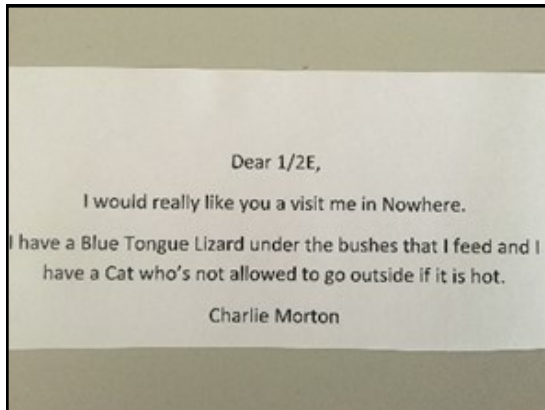 Dear 1/2E,
I would really like you a visit me in Nowhere.
I have a Blue Tongue Lizard under the bushes that I feed and I
have a Cat who's not allowed to go outside if it is hot.
Charlie Morton